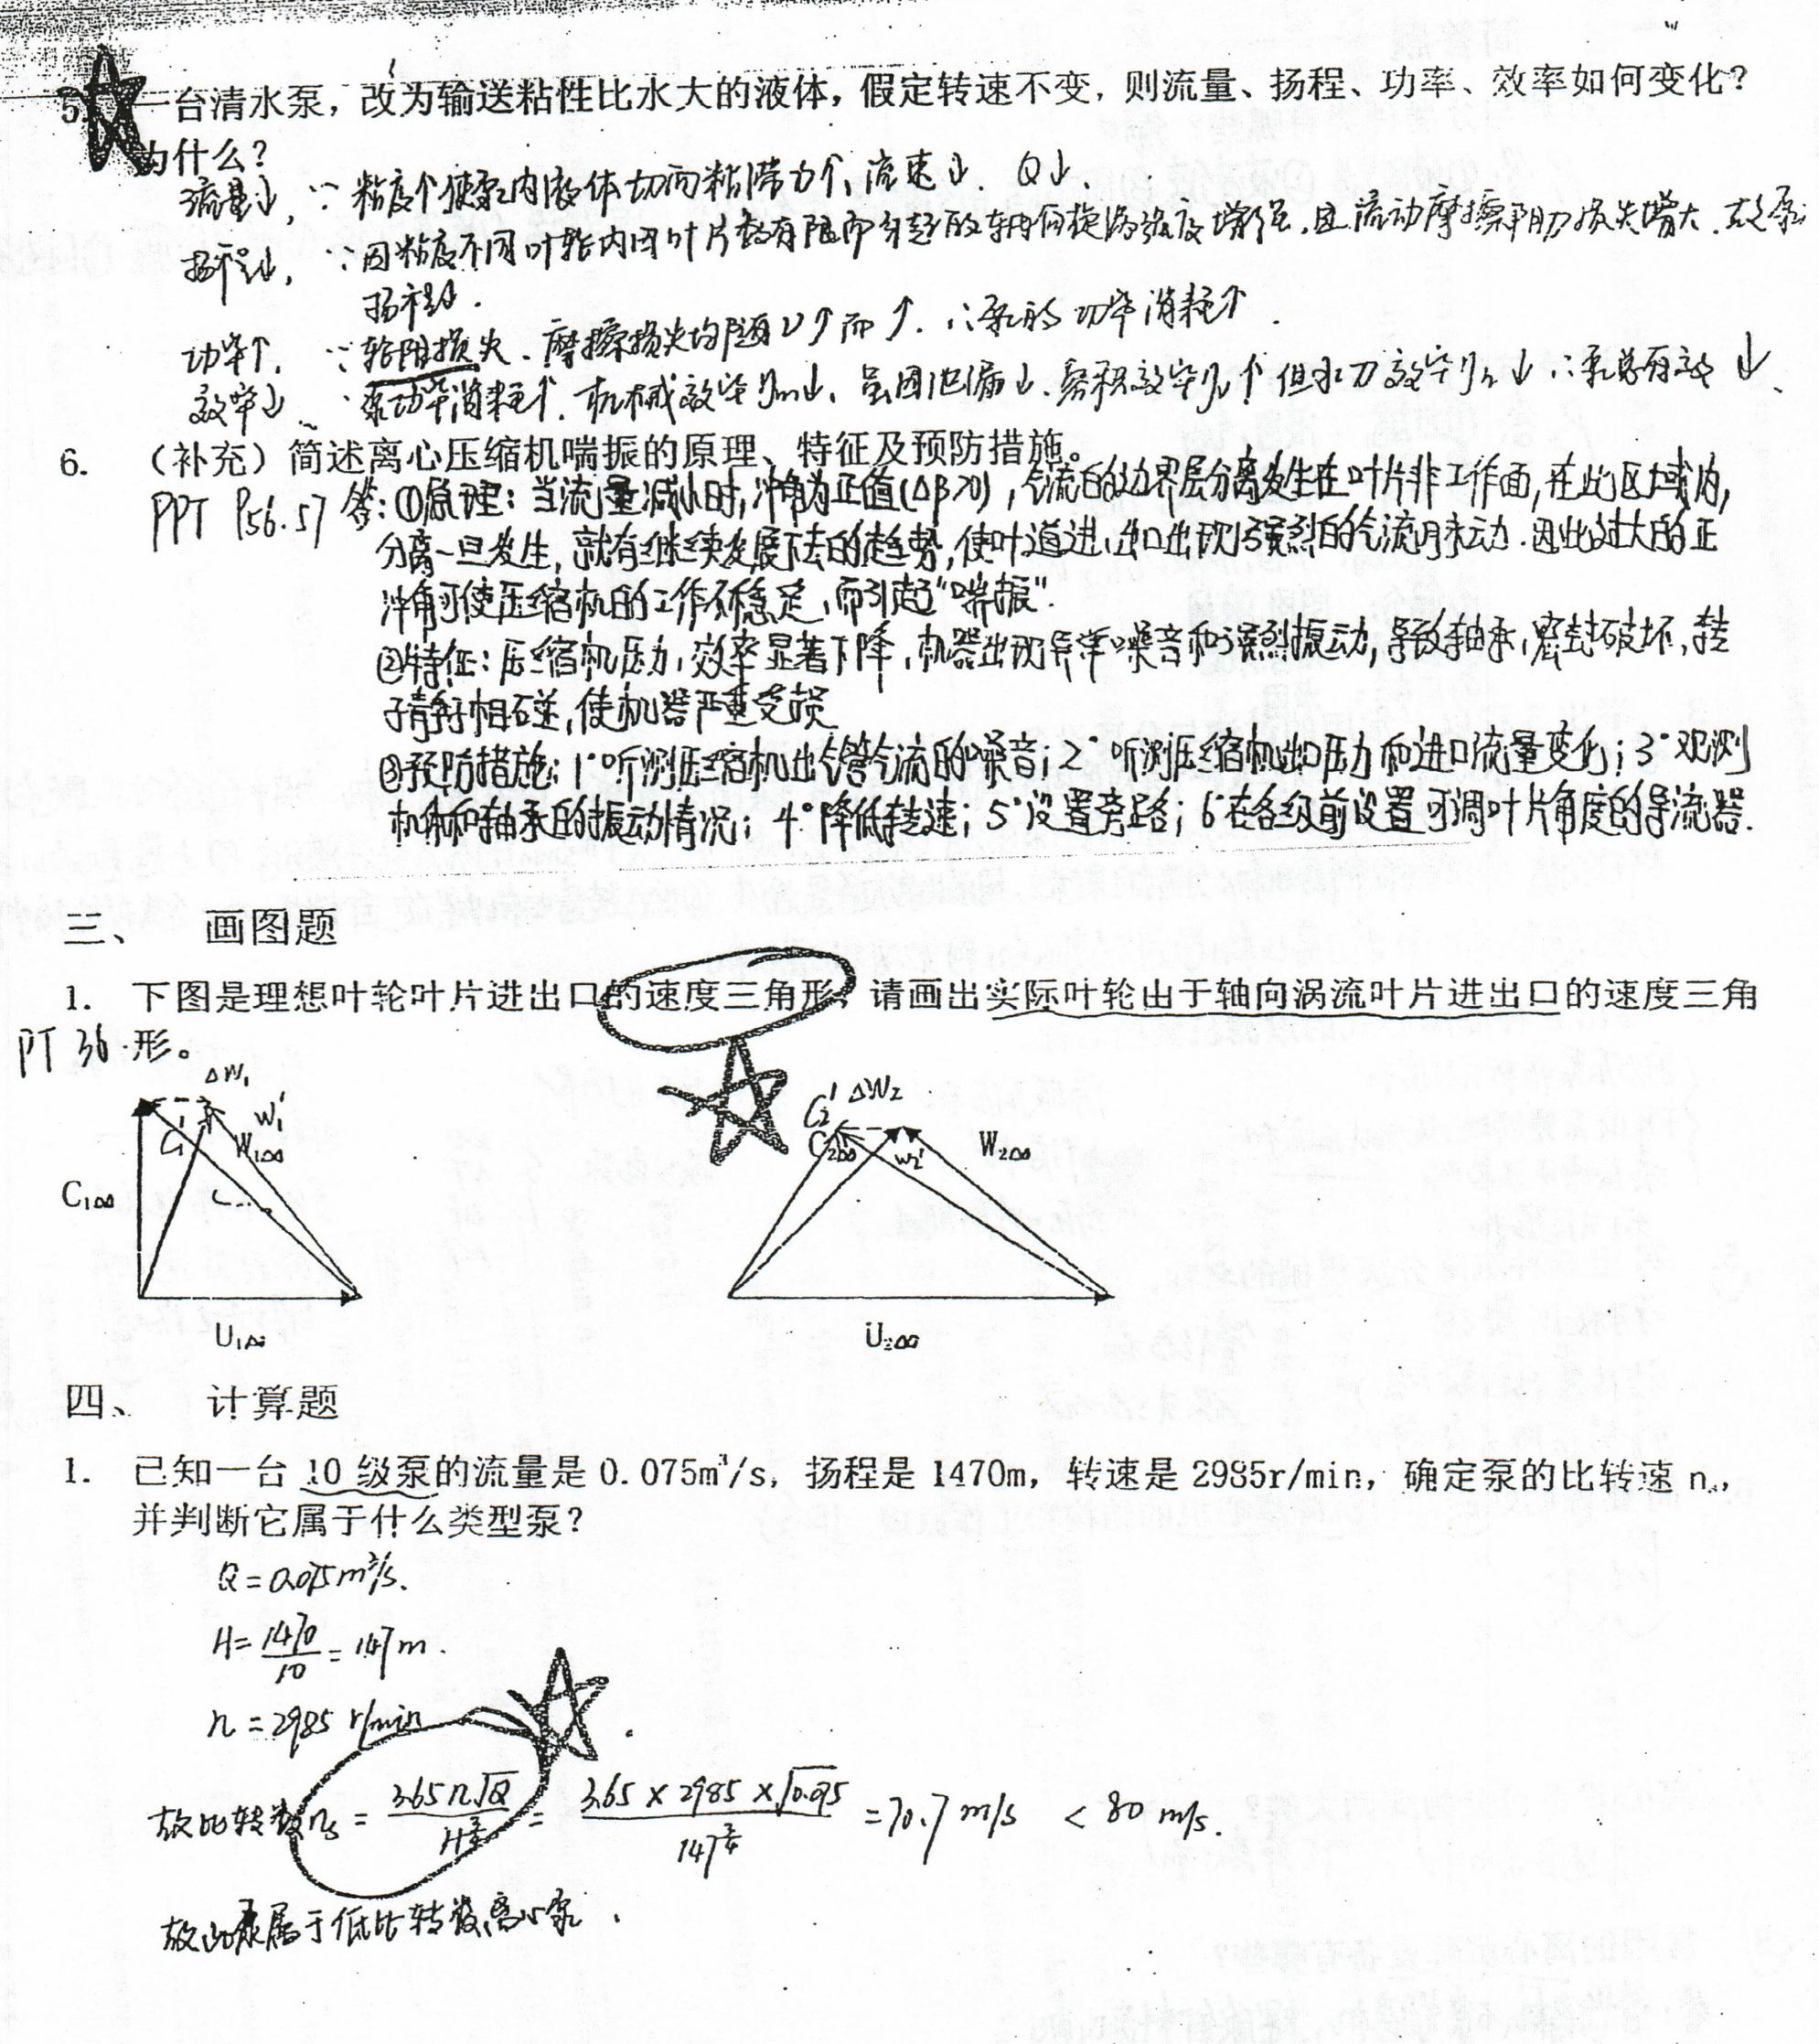 5. 一台清水泵，改为输送粘性比水大的液体，假定转速不变，则流量、扬程、功率、效率如何变化？
为什么？
流量↓，∵粘度个使泵内液体切向粘滞力个，流速↓．Q↓．
扬程↓，∵因粘度不同叶轮内因叶片数有限而引起的轴向旋涡强度增强，且流动摩擦阻力损失增大．故泵
扬程↓．
功率↑．∵轮阻损失、摩擦损失均随ν↑而↑．∴泵的功率消耗↑．
效率↓．∵泵功率消耗↑．机械效率ηm↓，虽因泄漏↓．容积效率ηv↑但水力效率ηh↓∴泵总有效↓．
6. （补充）简述离心压缩机喘振的原理、特征及预防措施。
PPT P56.57 答：①原理：当流量减小时，冲角为正值(Δβ>0)，气流的边界层分离发生在叶片非工作面，在此区域内，
分离一旦发生，就有继续发展下去的趋势，使叶道进、出口出现强烈的气流脉动．因此过大的正
冲角可使压缩机的工作不稳定，而引起“喘振”．
②特征：压缩机压力，效率显著下降，机器出现异常噪音和强烈振动，导致轴承，密封破坏，转
子静子相碰，使机器严重受损
③预防措施：1°听测压缩机出气管气流的噪音；2°听测压缩机出口压力和进口流量变化；3°观测
机体和轴承的振动情况；4°降低转速；5°设置旁路；6°在各级前设置可调叶片角度的导流器．
三、 画图题
1. 下图是理想叶轮叶片进出口的速度三角形，请画出实际叶轮由于轴向涡流叶片进出口的速度三角
PT 36 形。
ΔW₁ C₂' ΔW₂
C₁' W₁' W₁∞ C₂∞ W₂' W₂∞
C₁∞
U₁∞ U₂∞
四、 计算题
1. 已知一台 10 级泵的流量是 0.075m³/s，扬程是 1470m，转速是 2985r/min，确定泵的比转速 nₛ，
并判断它属于什么类型泵？
Q=0.075m³/s．
H=1470/10=147m．
n=2985 r/min
故比转数nₛ=3.65n√Q/H^(3/4)=3.65×2985×√0.075/147^(3/4)=70.7 m/s < 80 m/s．
故此泵属于低比转数离心泵．